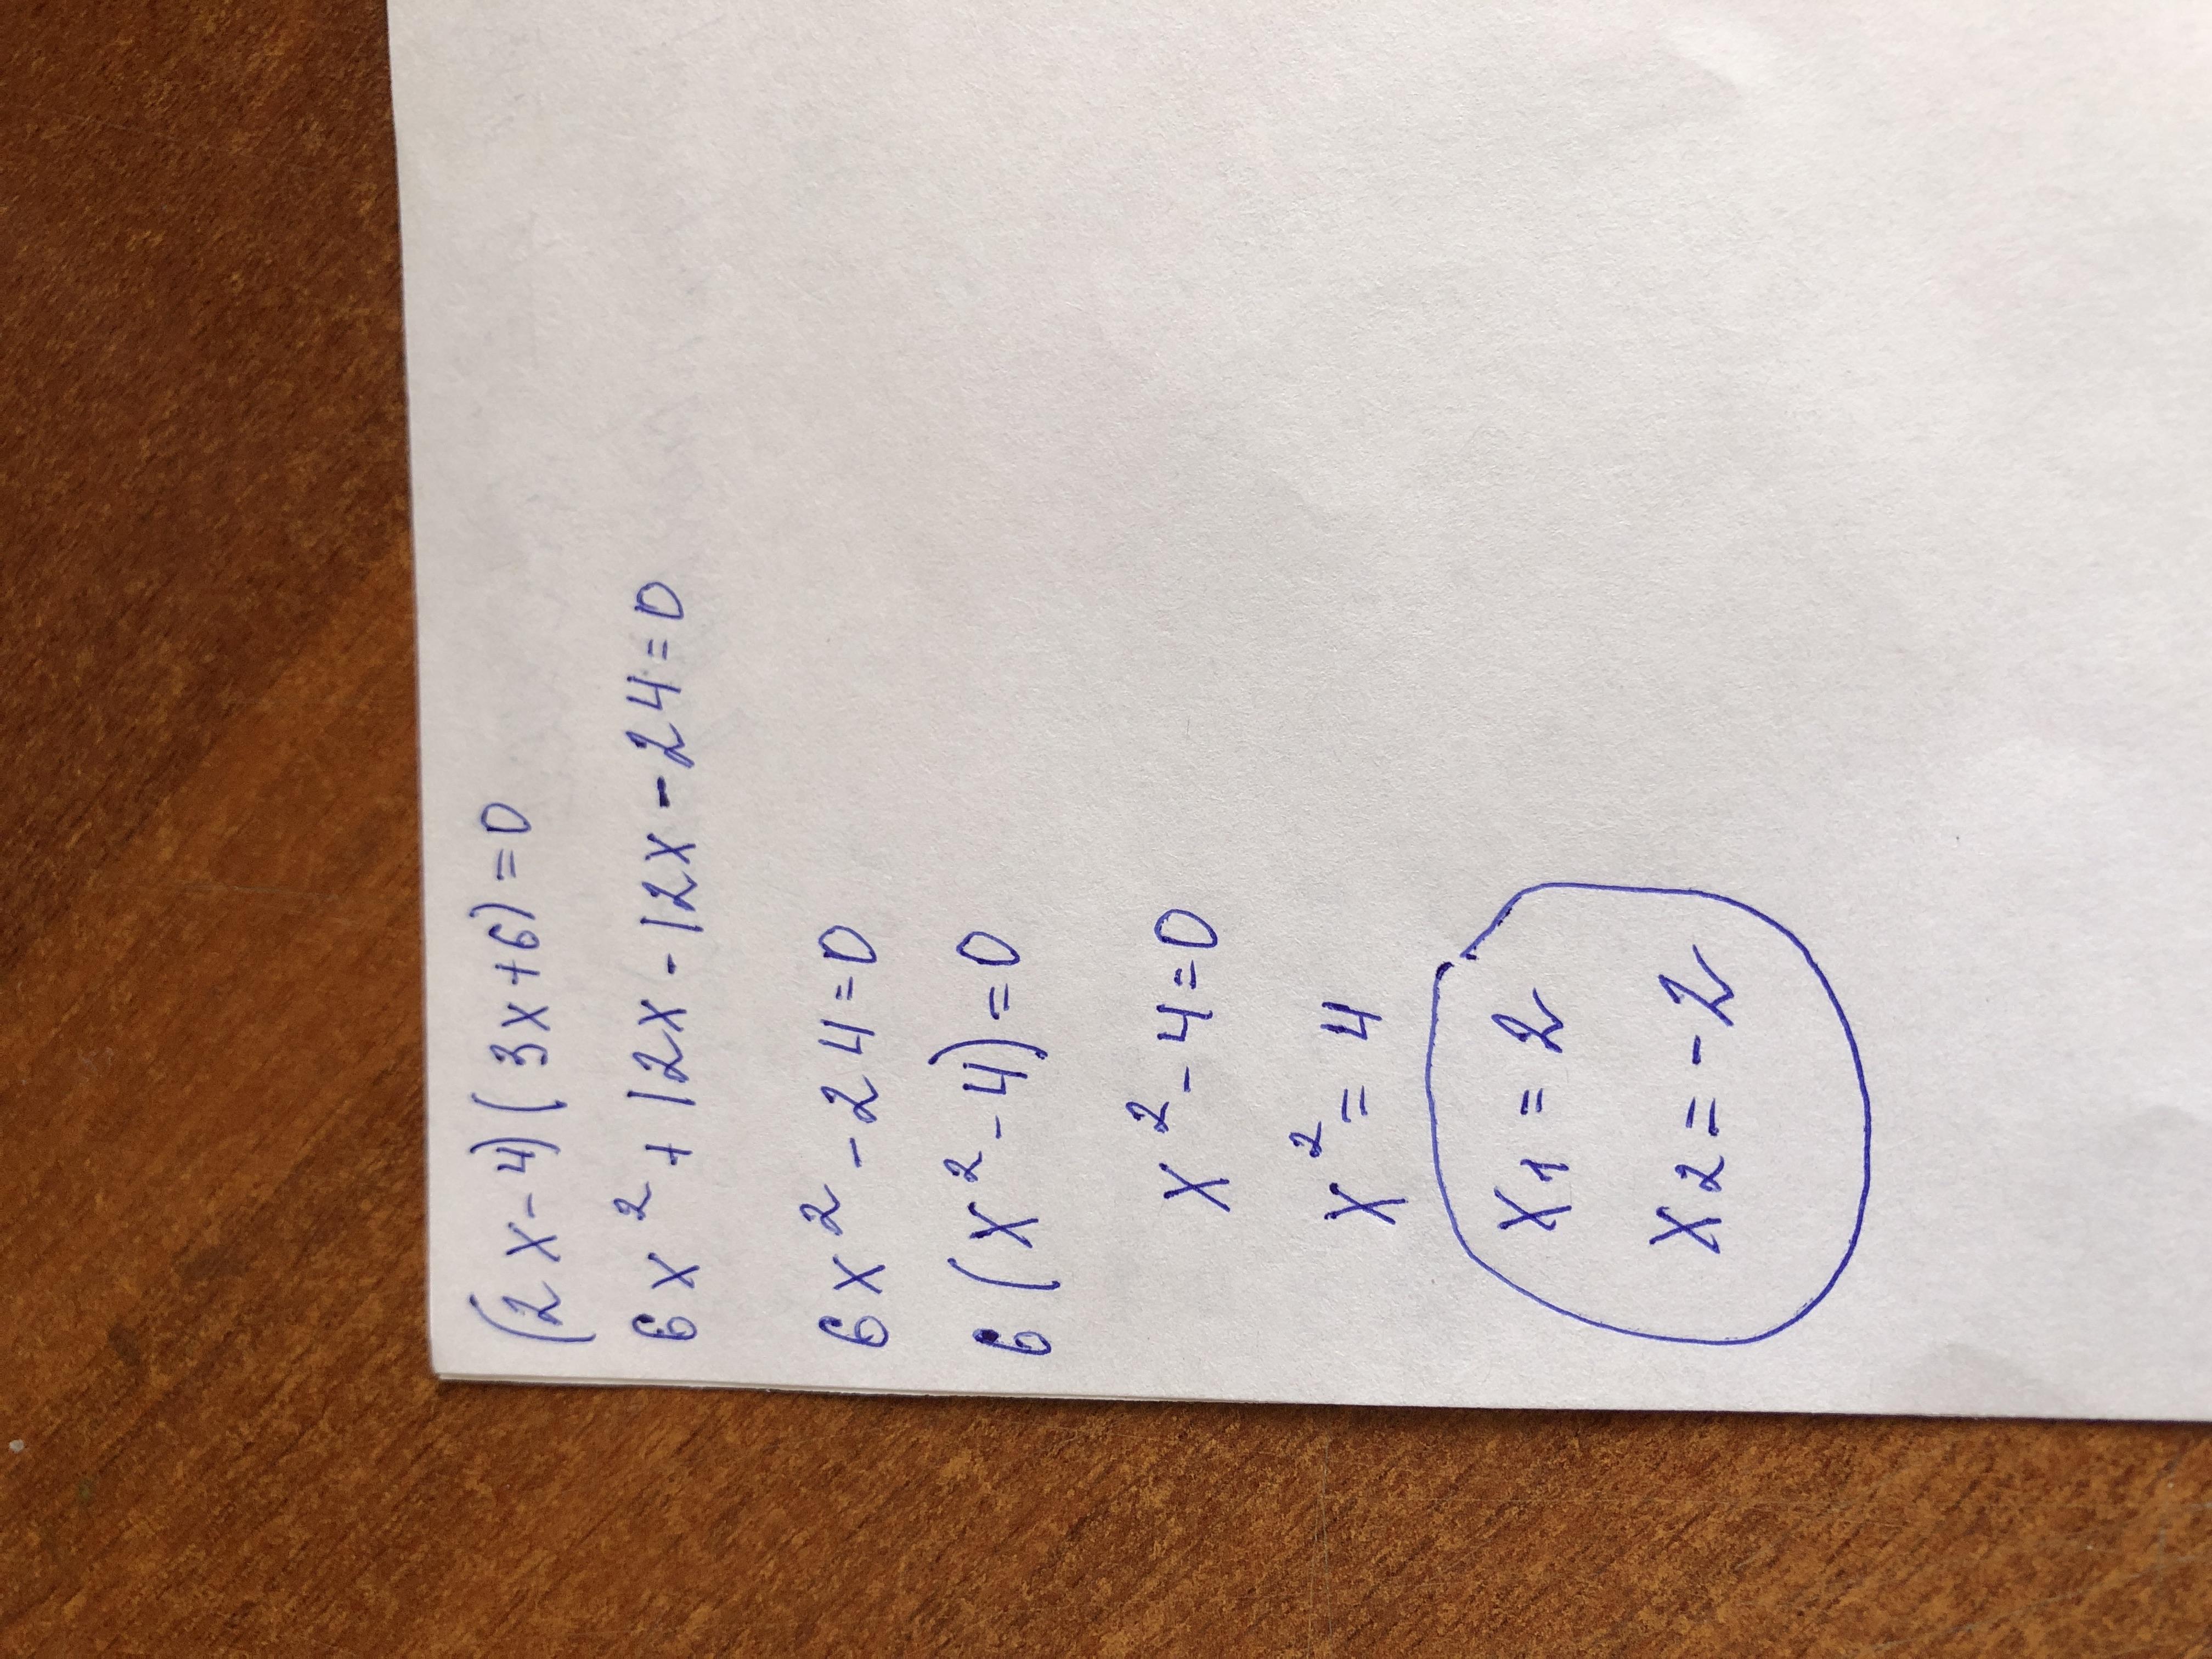 (2x-4)(3x+6)=0
6x²+12x-12x-24=0
6x²-24=0
6(x²-4)=0
x²-4=0
x²=4
x₁=2
x₂=-2